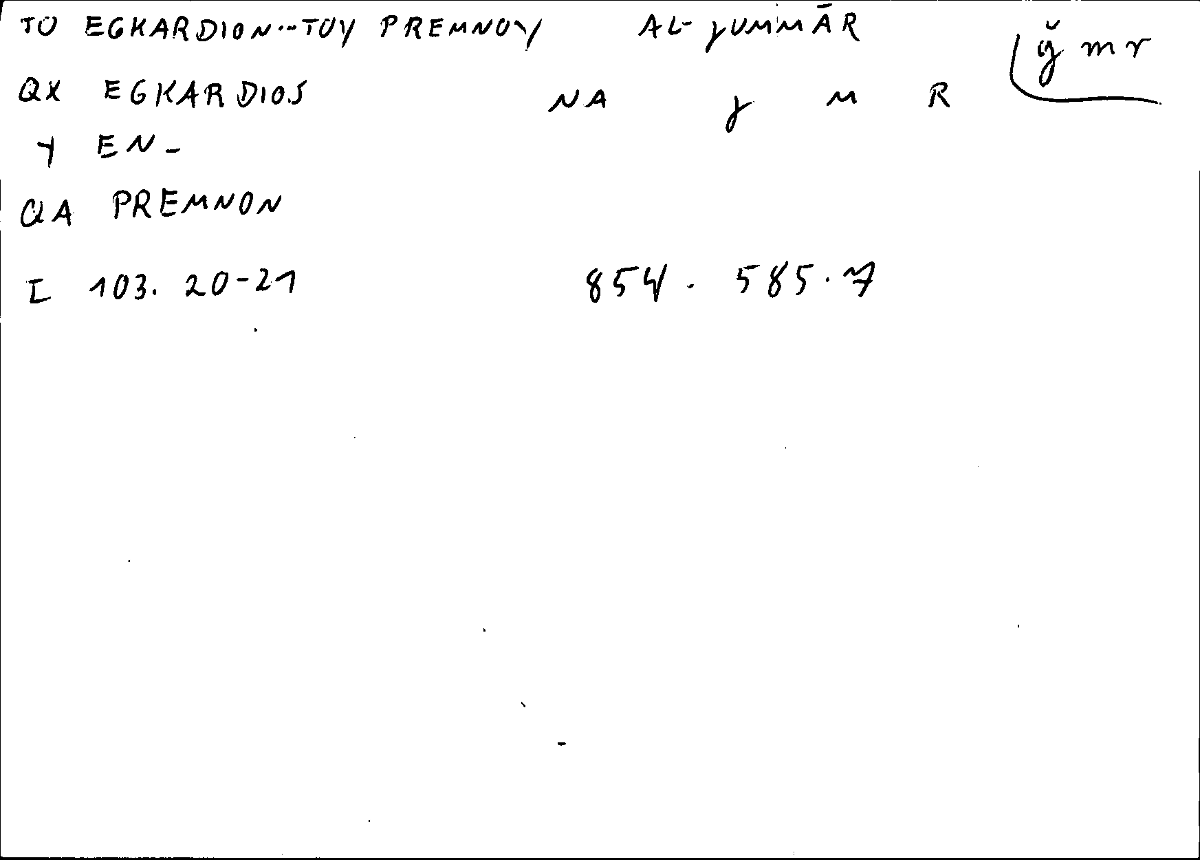 TO EGKARDION...TOY PREMNOY AL-ɣUMMĀR ǧmr
QX EGKARDIOS NA ɣ M R
Y EN-
QA PREMNON
I 103. 20-21 854. 585.7